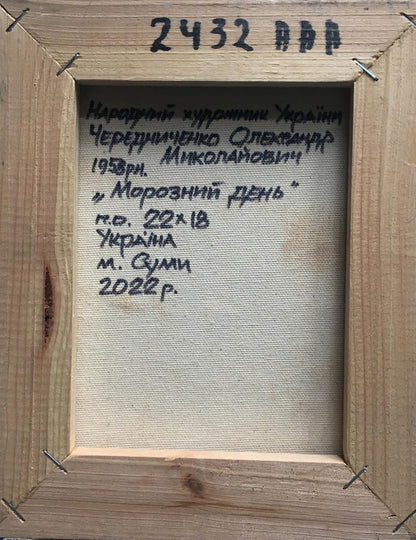 2432 ААА
Народний художник України
Чередниченко Олександр
Миколайович
1958рн.
„Морозний день"
п.о. 22×18
Україна
м. Суми
2022р.